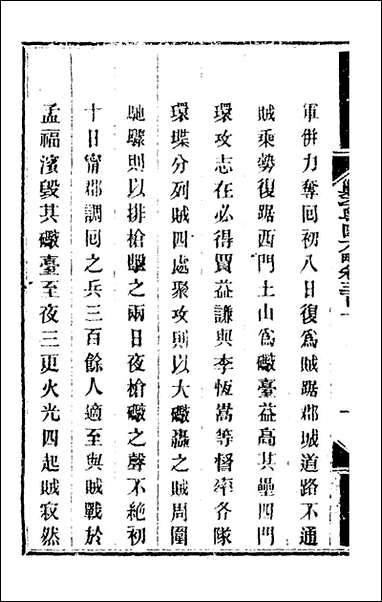 軍併力奪回初八日復爲賊踞郡城道路不通
賊乘勢復踞西門土山爲礮臺益高其壘四門
環攻志在必得賈益謙與李恆嵩等督率各隊
環堞分列賊四處聚攻則以大礮轟之賊周圍
馳驟則以排槍擊之兩日夜槍礮之聲不絕初
十日甯郡調回之兵三百餘人適至與賊戰於
孟福濱毀其礮臺至夜三更火光四起賊寂然